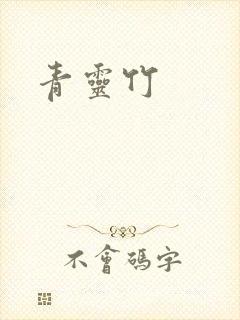 青靈竹
不會碼字